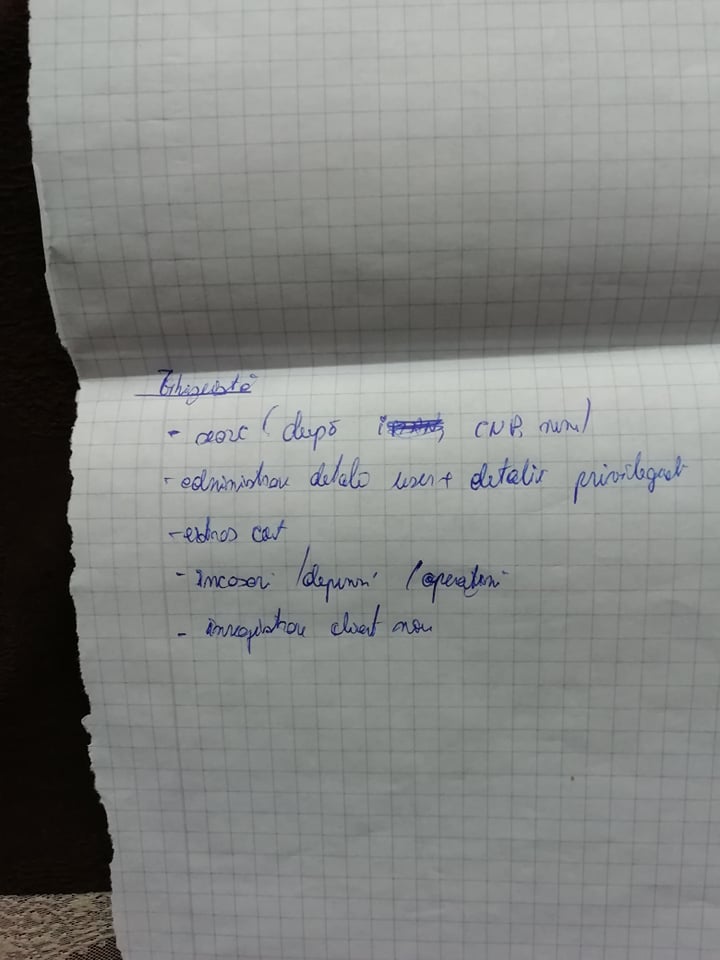 Ghișeistă
- caze (după CNP, nume)
- administrare detalii user + detalii privilegiat
- extras cont
- încasări /depuneri /operațiuni
- înregistrare client nou